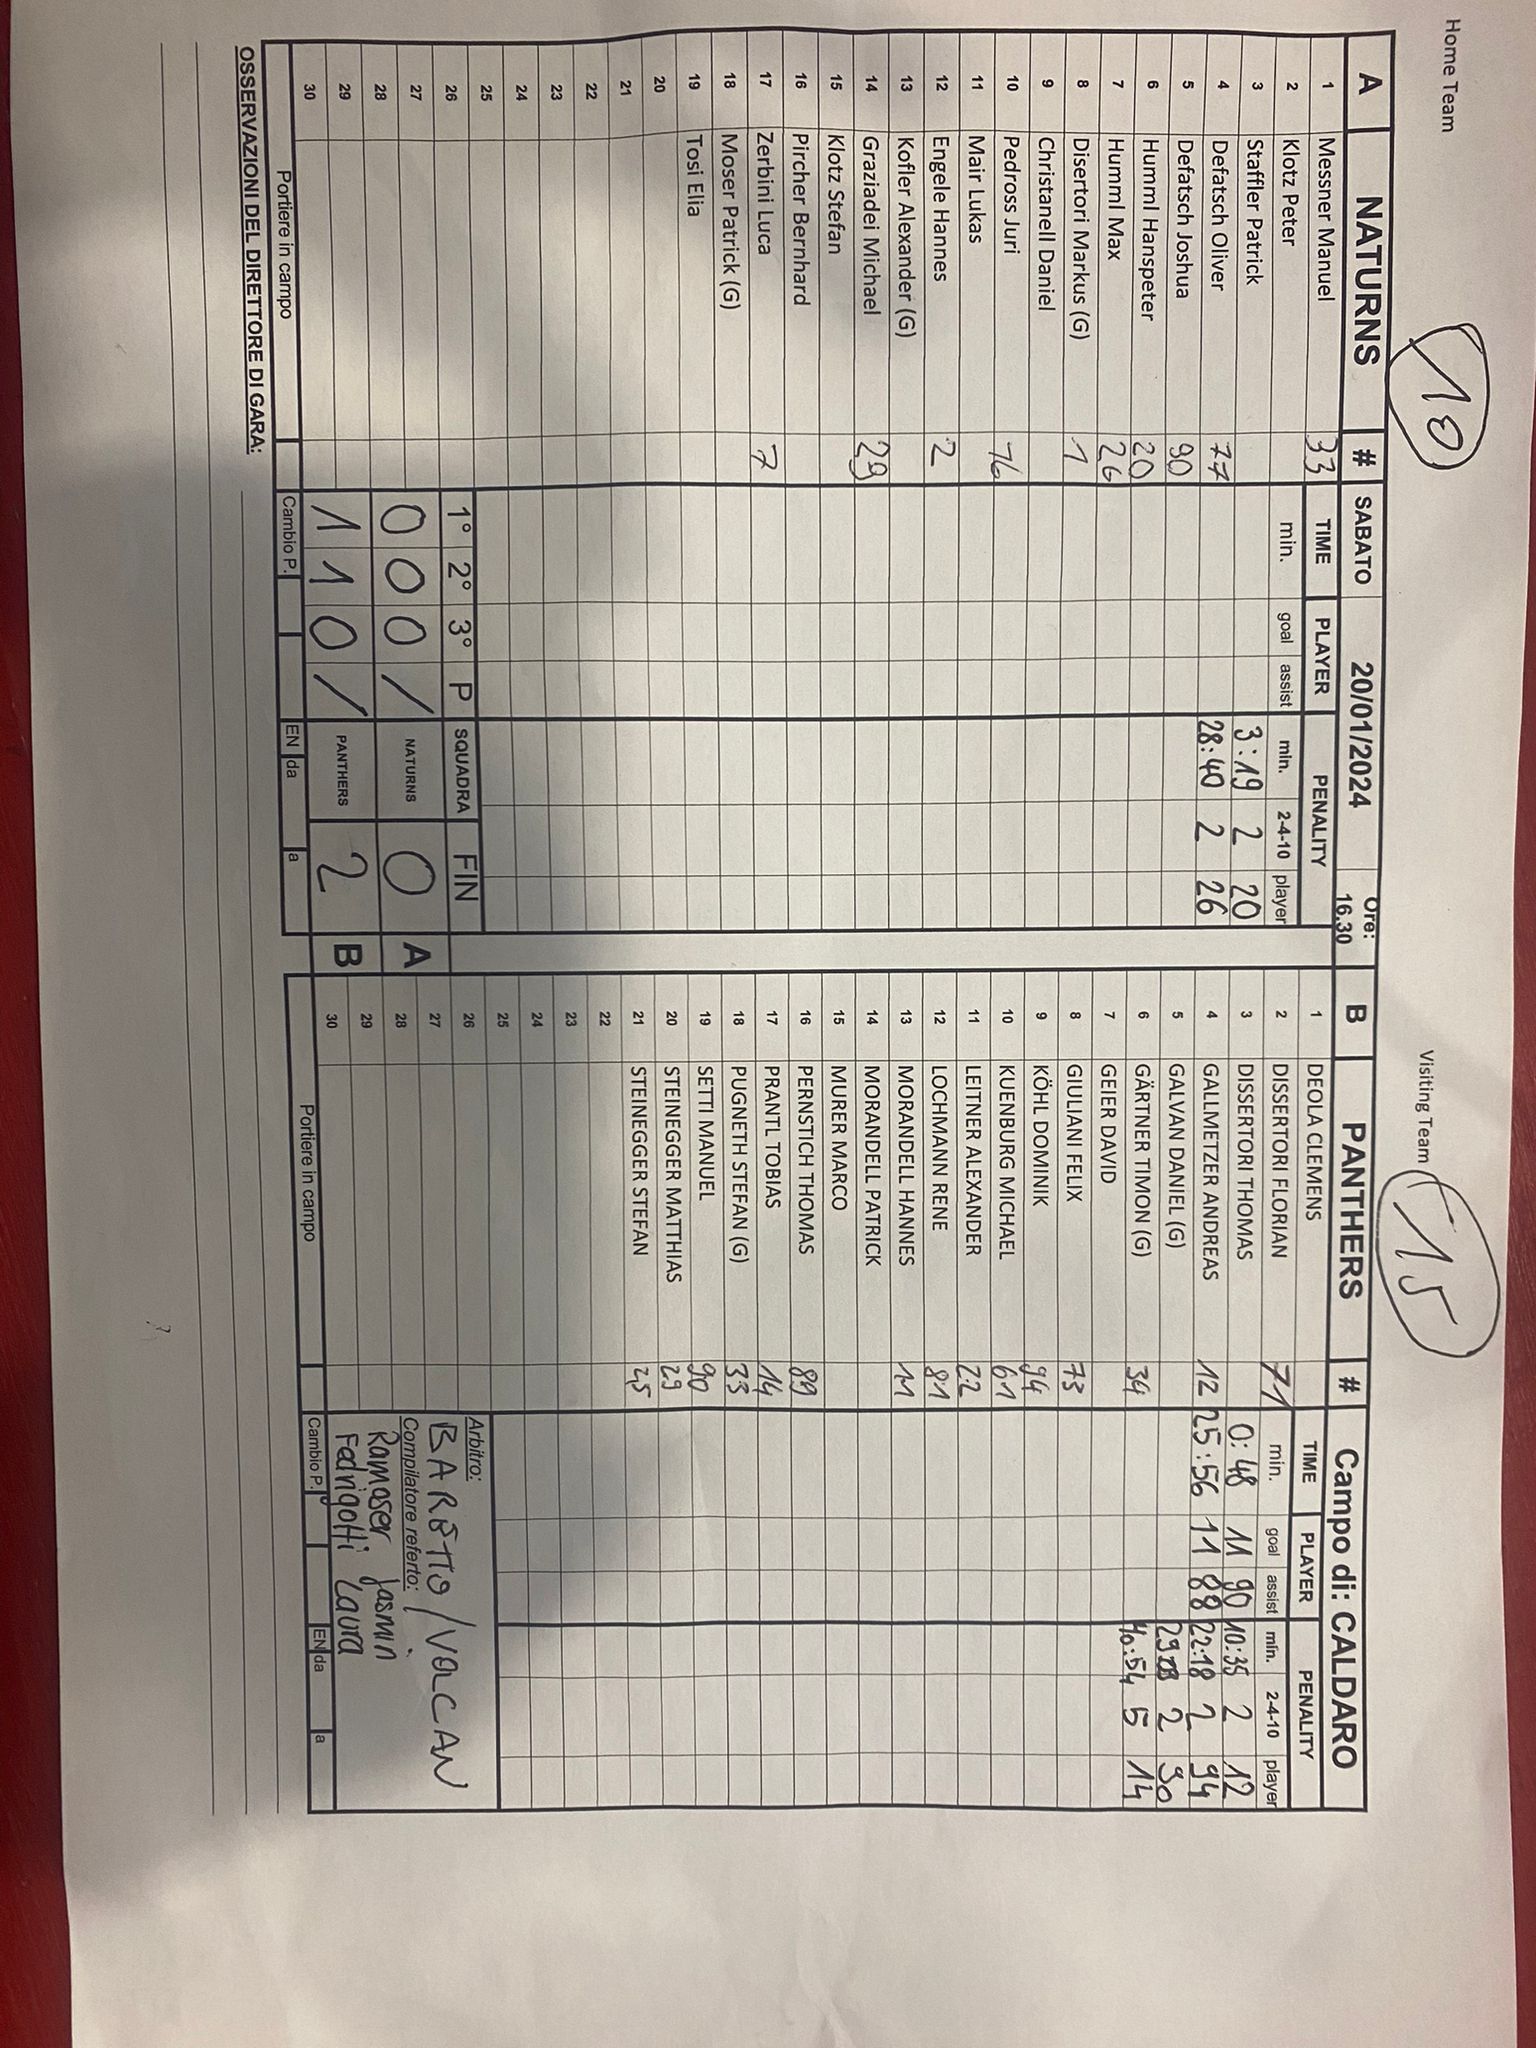 Home Team
10
Visiting Team
15
A NATURNS # SABATO 20/01/2024 Ore: 16.30 B PANTHERS # Campo di: CALDARO
TIME PLAYER PENALITY TIME PLAYER PENALITY
min. goal assist min. 2-4-10 player min. goal assist min. 2-4-10 player
1 Messner Manuel 33 1 DEOLA CLEMENS
2 Klotz Peter 2 DISSERTORI FLORIAN 71
3 Staffler Patrick 3:19 2 20 3 DISSERTORI THOMAS 0:48 11 90 10:35 2 12
4 Defatsch Oliver 77 28:40 2 26 4 GALLMETZER ANDREAS 12 25:56 11 88 22:18 2 94
5 Defatsch Joshua 90 5 GALVAN DANIEL (G) 2 90
6 Humml Hanspeter 20 6 GÄRTNER TIMON (G) 34 40:54 5 14
7 Humml Max 26 7 GEIER DAVID
8 Disertori Markus (G) 1 8 GIULIANI FELIX 73
9 Christanell Daniel 9 KÖHL DOMINIK 94
10 Pedross Juri 76 10 KUENBURG MICHAEL 61
11 Mair Lukas 11 LEITNER ALEXANDER 22
12 Engele Hannes 2 12 LOCHMANN RENE 81
13 Kofler Alexander (G) 13 MORANDELL HANNES 11
14 Graziadei Michael 29 14 MORANDELL PATRICK
15 Klotz Stefan 15 MURER MARCO
16 Pircher Bernhard 16 PERNSTICH THOMAS 89
17 Zerbini Luca 7 17 PRANTL TOBIAS 14
18 Moser Patrick (G) 18 PUGNETH STEFAN (G) 33
19 Tosi Elia 19 SETTI MANUEL 90
20 20 STEINEGGER MATTHIAS 29
21 21 STEINEGGER STEFAN 25
22 22
23 23
24 24
25 25
26 1° 2° 3° P SQUADRA FIN 26 Arbitro:
27 0 0 0 / NATURNS 0 A 27 BARÈTTO / VOLCAN
28 28 Compilatore referto:
29 1 1 0 / PANTHERS 2 B 29 Ramoser Jasmin
30 30 Fedrigotti Laura
Portiere in campo Cambio P. EN da a Portiere in campo Cambio P. EN da a
OSSERVAZIONI DEL DIRETTORE DI GARA: